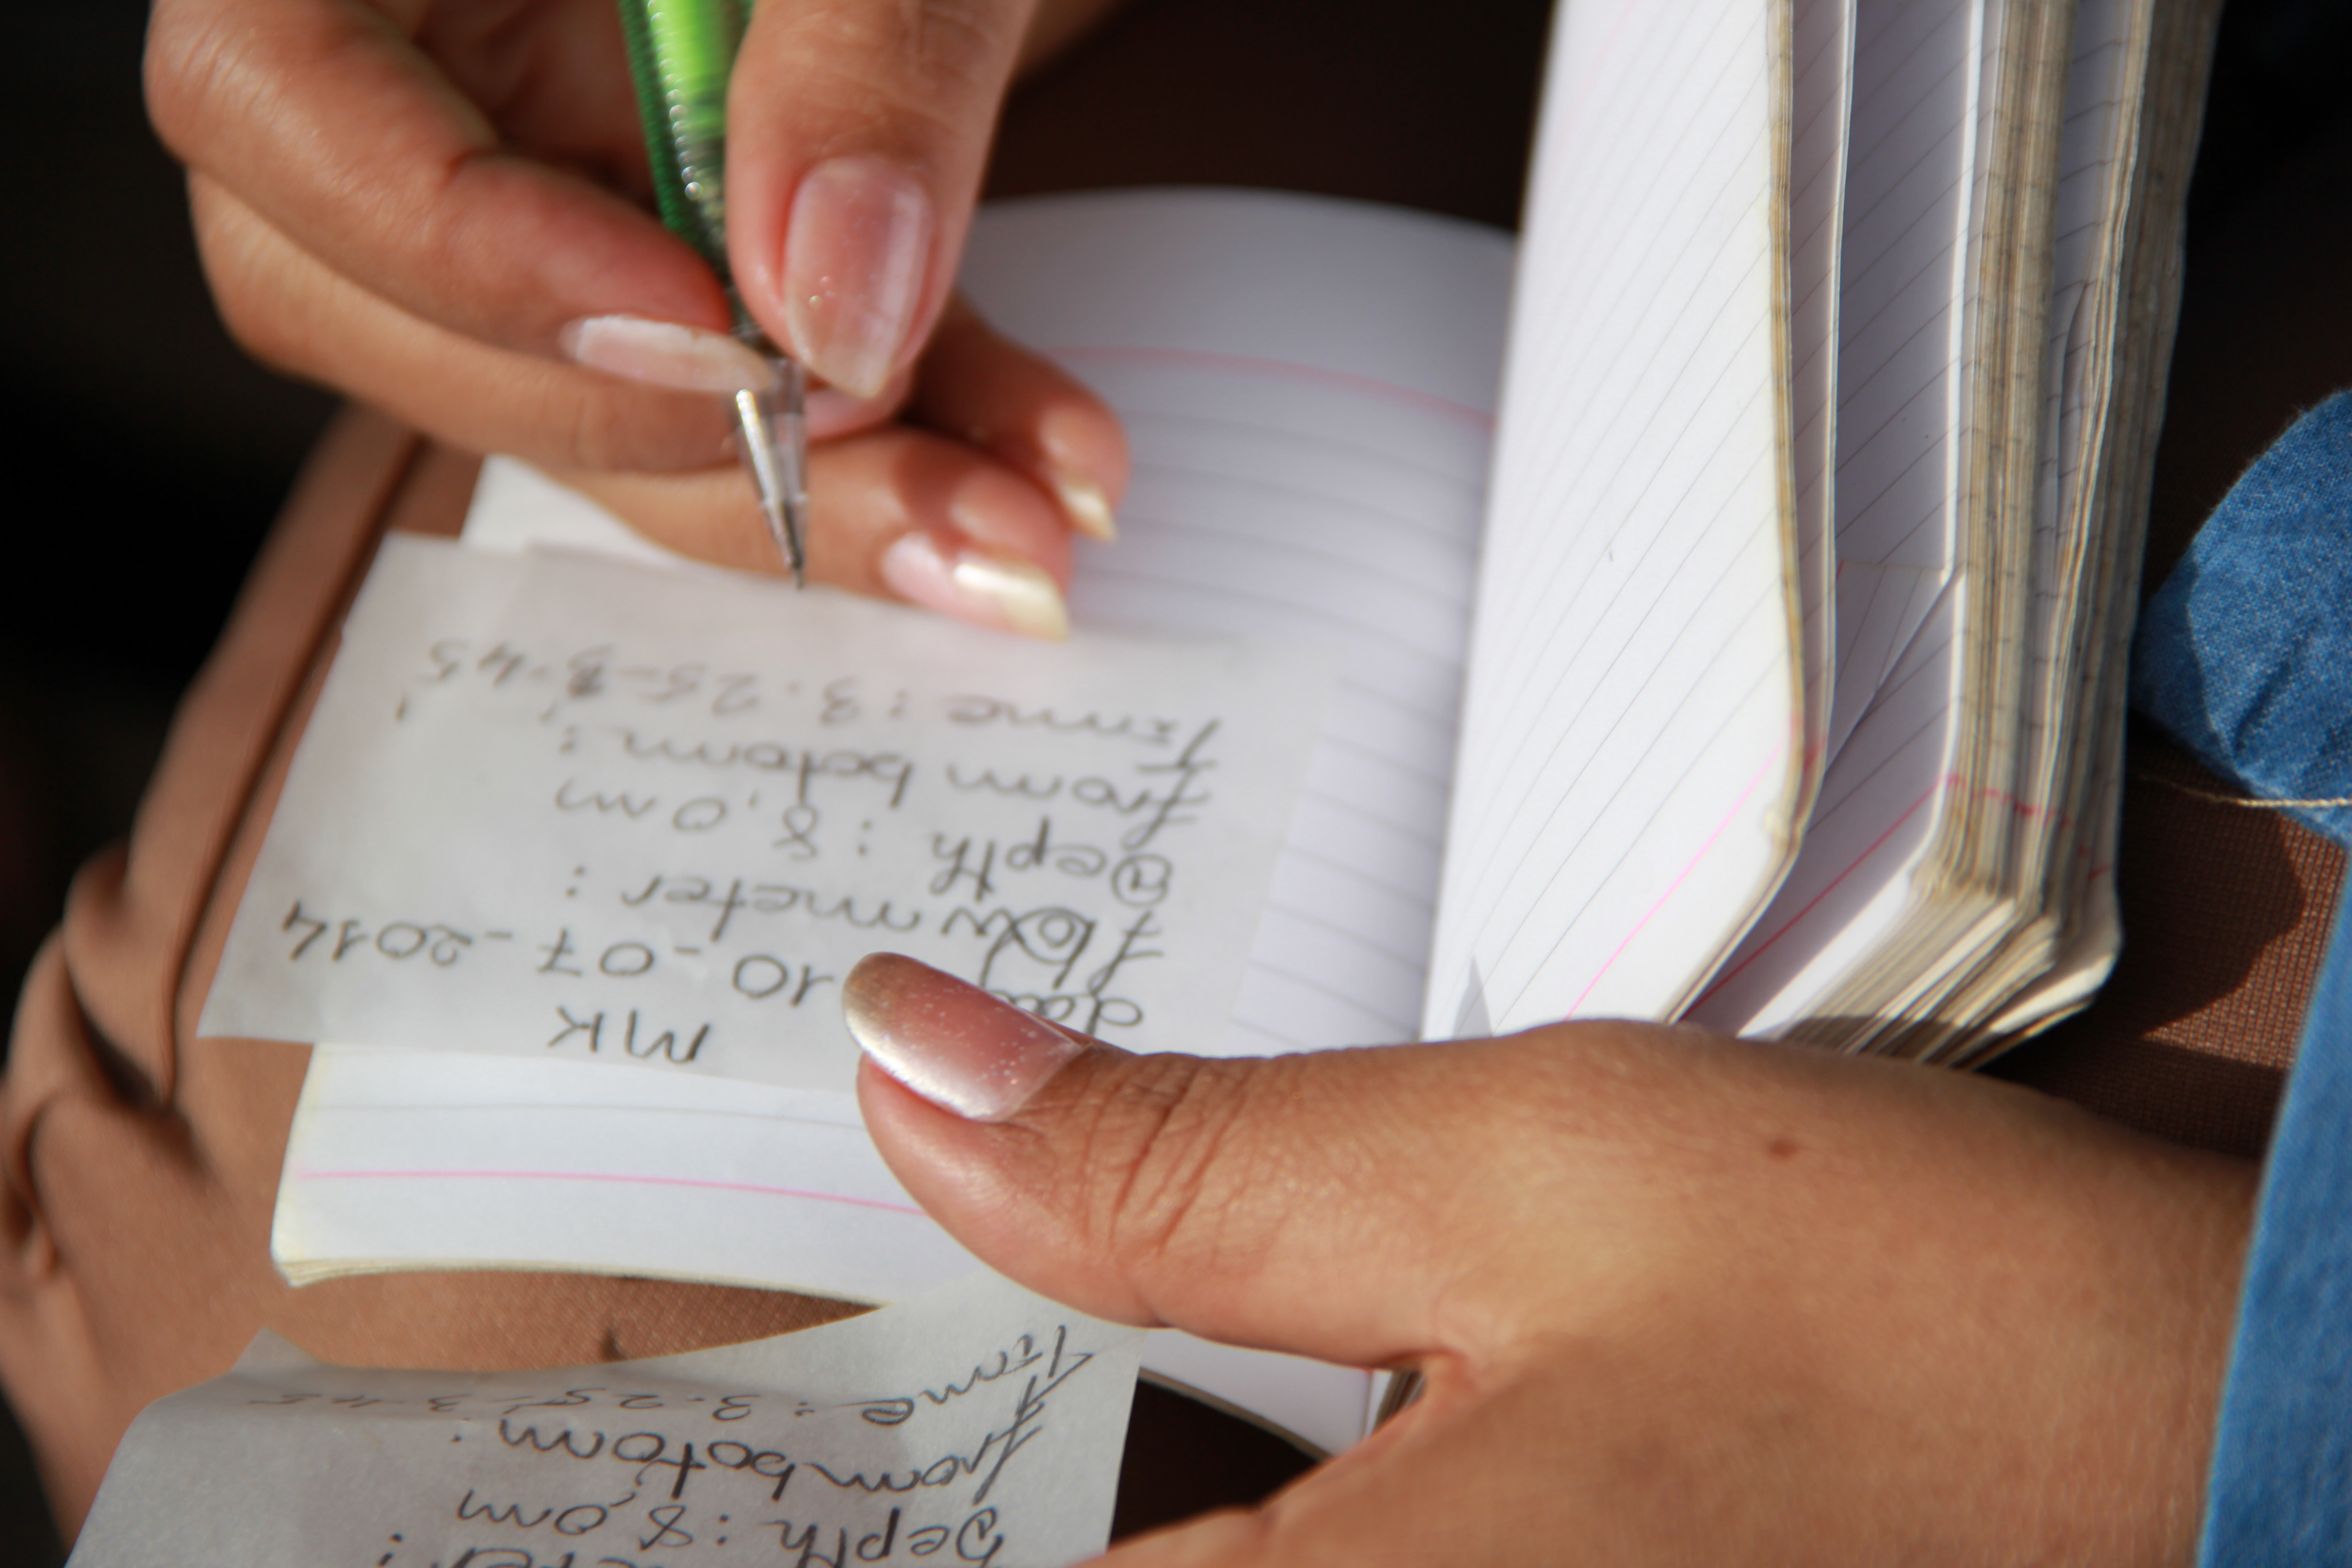 MK
10-07-2014
flowmeter :
Depth : 8,0 m
from botom :
Time : 3.25-3.45
Depth : 8,0m
from botom :
Time : 3.25-3.45